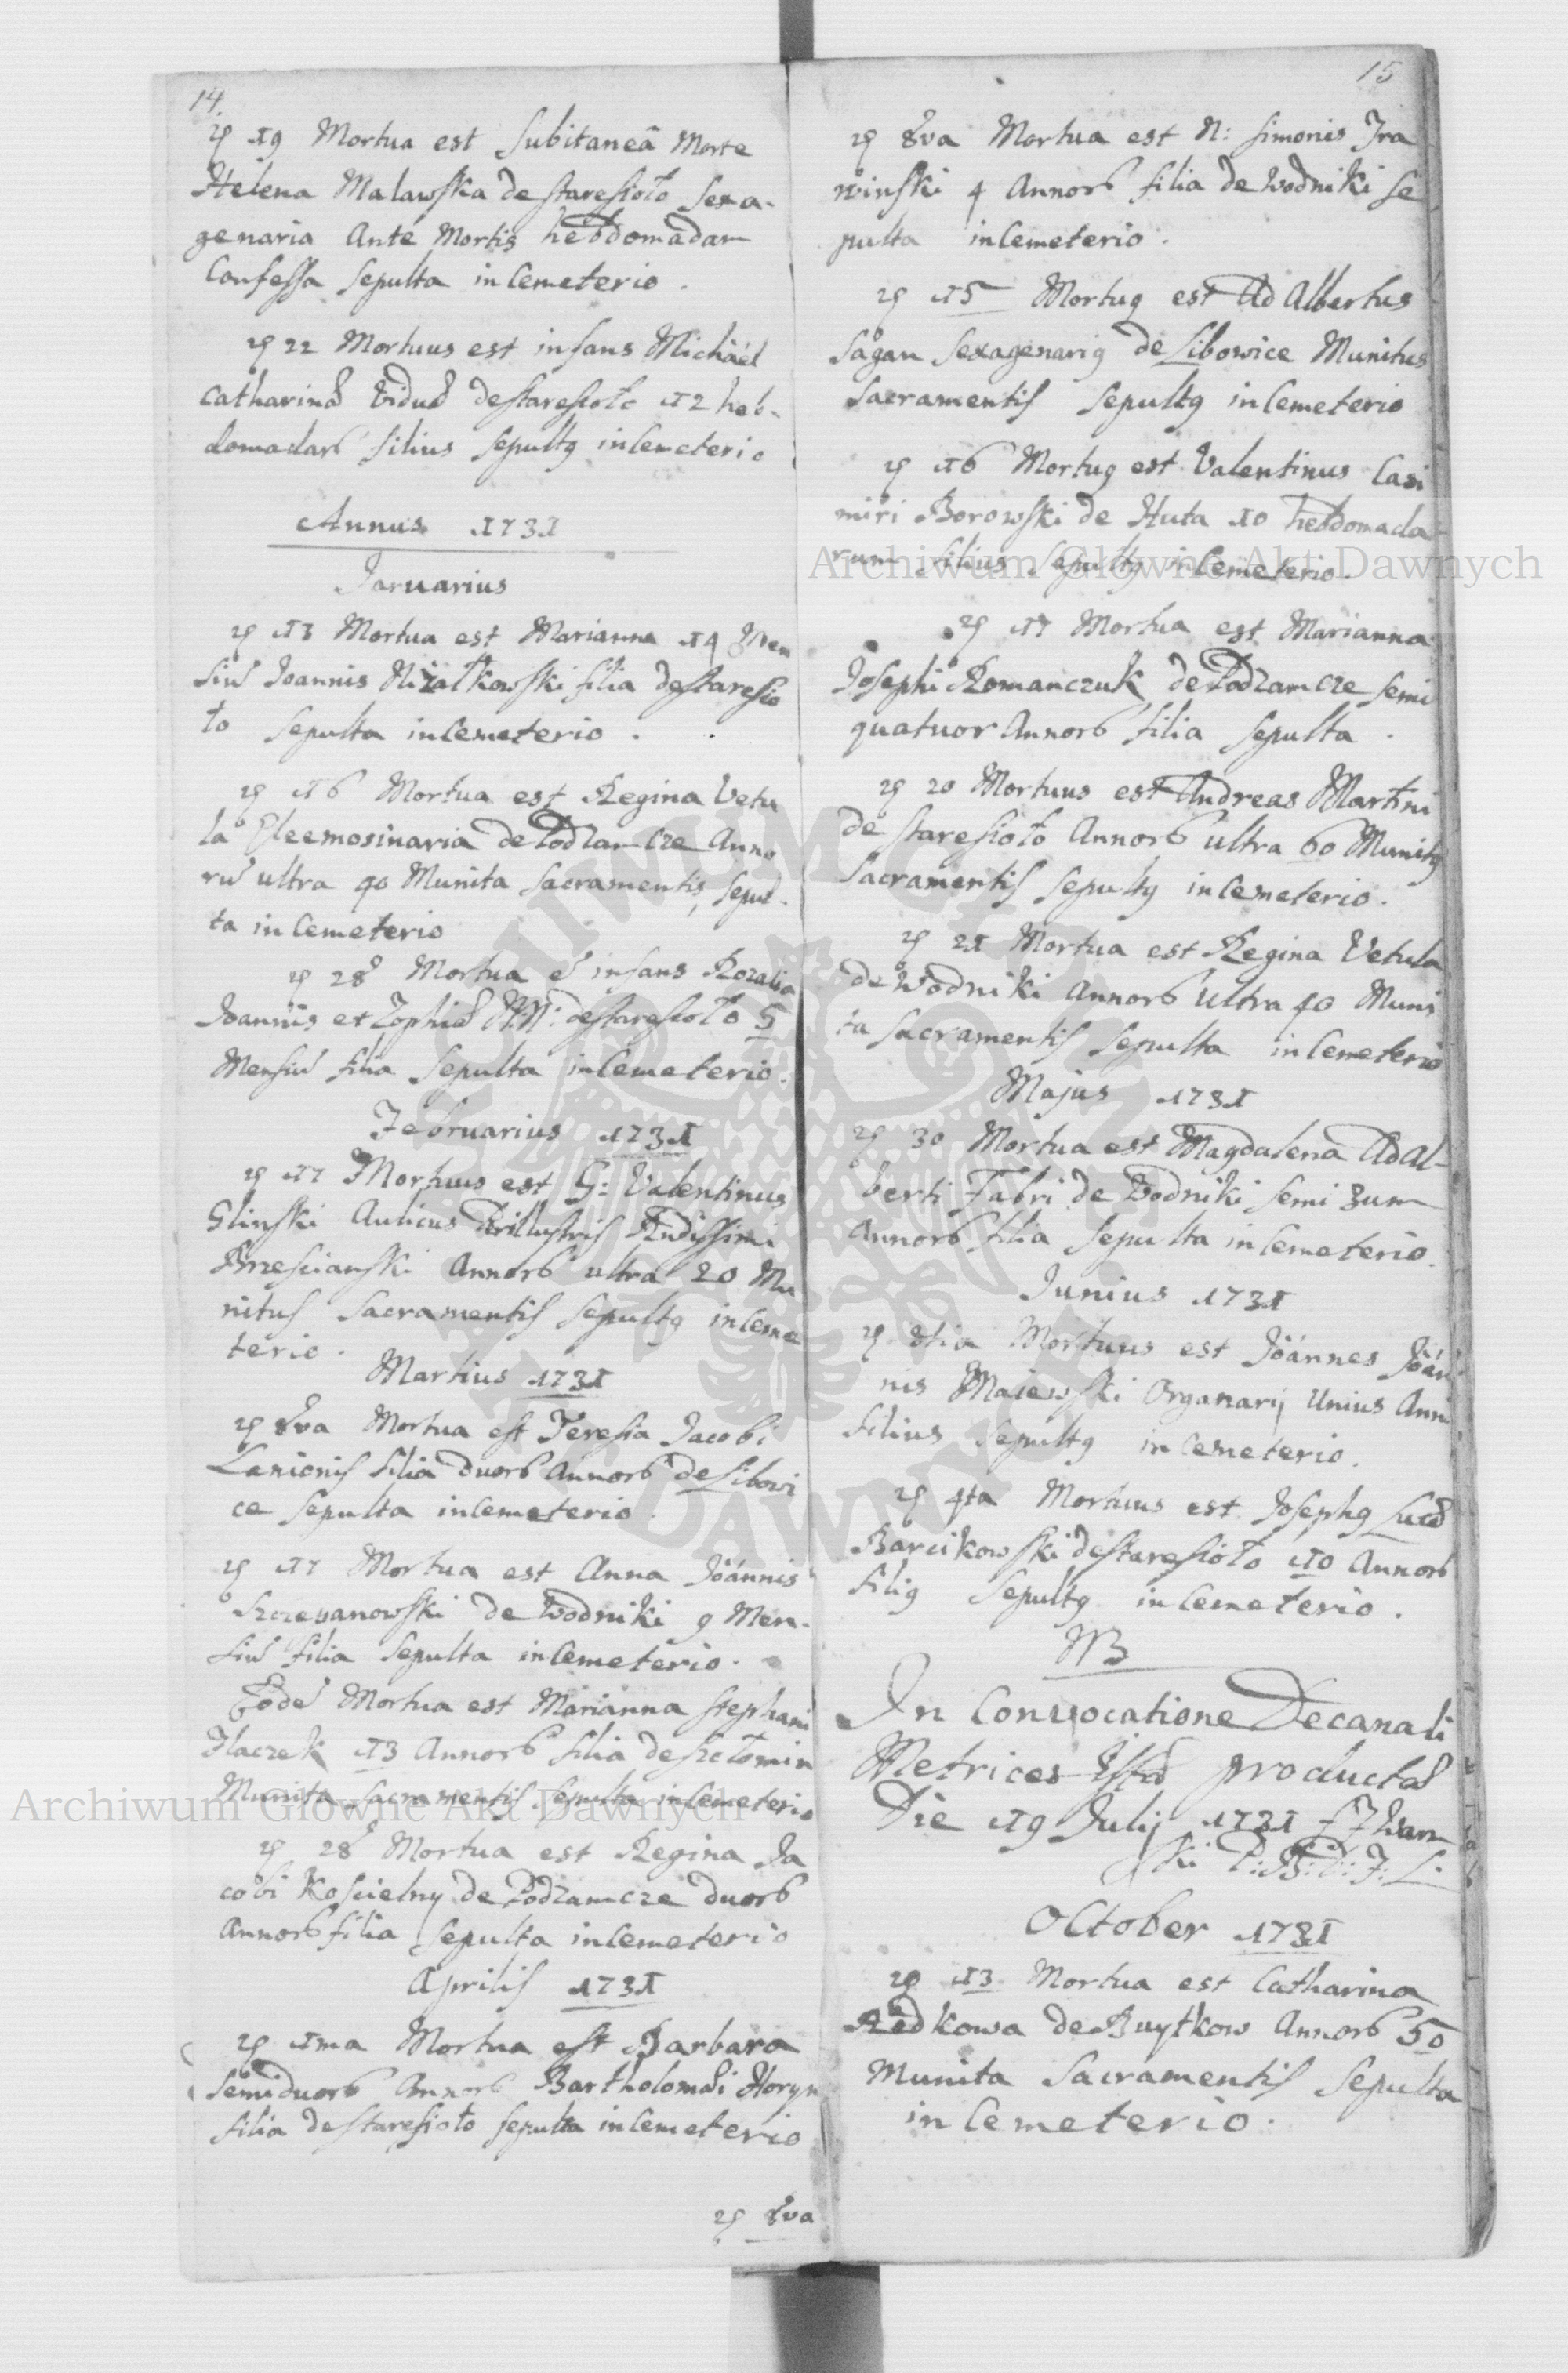 14.
19 Mortua est Subitaneâ Morte
Helena Malawska de Staresioło Sexa-
genaria Ante Mortis hebdomadam
Confessa Sepulta in Cemeterio.
22 Mortuus est infans Michaël
Catharinæ Viduæ de Staresioło 12 heb-
domadarũ filius Sepultꝰ in Cemeterio
Annus 1731
Januarius
13 Mortua est Marianna 14 Men
siũ Joannis Niżałkowski filia de Staresio
ło Sepulta in Cemeterio.
16 Mortua est Regina Vetu
la Eleemosinaria de Podzamcze Anno
rũ ultra 40 Munita Sacramentis, Sepul-
ta in Cemeterio
28 Mortua ẽ infans Rozalia
Joannis et Zophiæ NN: de Staresioło 5
Mensiũ filia Sepulta in Cemeterio.
Februarius 1731
17 Mortuus est G: Valentinus
Glinski Aulicus Perillustris Rndissimi
Brzesciański Annorũ ultra 20 Mu
nitus Sacramentis Sepultꝰ in Ceme
terio.
Martius 1731
8va Mortua est Teresia Jacobi
Lanionis filia duorũ Annorũ de Libowi
ce Sepulta in Cemeterio.
17 Mortua est Anna Joánnis
Szczepanowski de Wodniki 9 Men-
siũ filia Sepulta in Cemeterio.
Eodẽ Mortua est Marianna Stephani
Tkaczek 13 Annorũ filia de Szołomin
Munita Sacramentis Sepulta in Cemeterio
28 Mortua est Regina Ja
cobi Koscielny de Podzamcze duorũ
Annorũ filia Sepulta in Cemeterio
Aprilis 1731
1ma Mortua est Barbara
Semiduorũ Annorũ Bartholomæi Horyn
filia de Staresioło Sepulta in Cemeterio
8va
15
8va Mortua est N: Simonis Tra
winski 4 Annorũ filia de Wodniki Se
pulta in Cemeterio.
15 Mortuꝰ est AdAlbertus
Sagan Sexagenariꝰ de Libowice Munitus
Sacramentis Sepultꝰ in Cemeterio
16 Mortuꝰ est Valentinus Casi
miri Borowski de Huta 10 hebdomada-
rum filius Sepultꝰ in Cemeterio.
17 Mortua est Marianna
Josephi Romanczuk de Podzamcze Semi
quatuor Annorũ filia Sepulta.
20 Mortuus est Andreas Martini
de Staresioło Annorũ ultra 60 Munitꝰ
Sacramentis Sepultꝰ in Cemeterio.
21 Mortua est Regina Vetula
de Wodniki Annorũ Ultra 40 Muni
ta Sacramentis Sepulta in Cemeterio
Majus 1731
30 Mortua est Magdalena AdAl-
berti Fabri de Wodniki Semi 3um
Annorũ filia Sepulta in Cemeterio.
Junius 1731
3tia Mortuus est Joánnes Joán
nis Maiewski Organarij Unius Anni
filius Sepultꝰ in Cemeterio.
4ta Mortuus est Josephꝰ Lucæ
Barcikowski de Staresioło 10 Annorũ
filiꝰ Sepultꝰ in Cemeterio.
NB
In Convocatione Decanali
Metrices Istæ productæ
Die 19 Julij 1731
October 1731
13 Mortua est Catharina
Redkowa de Buytkow Annorũ 50
Munita Sacramentis Sepulta
in Cemeterio.
Archiwum Główne Akt Dawnych
Archiwum Główne Akt Dawnych
ARCHIWUM GŁÓWNE AKT DAWNYCH